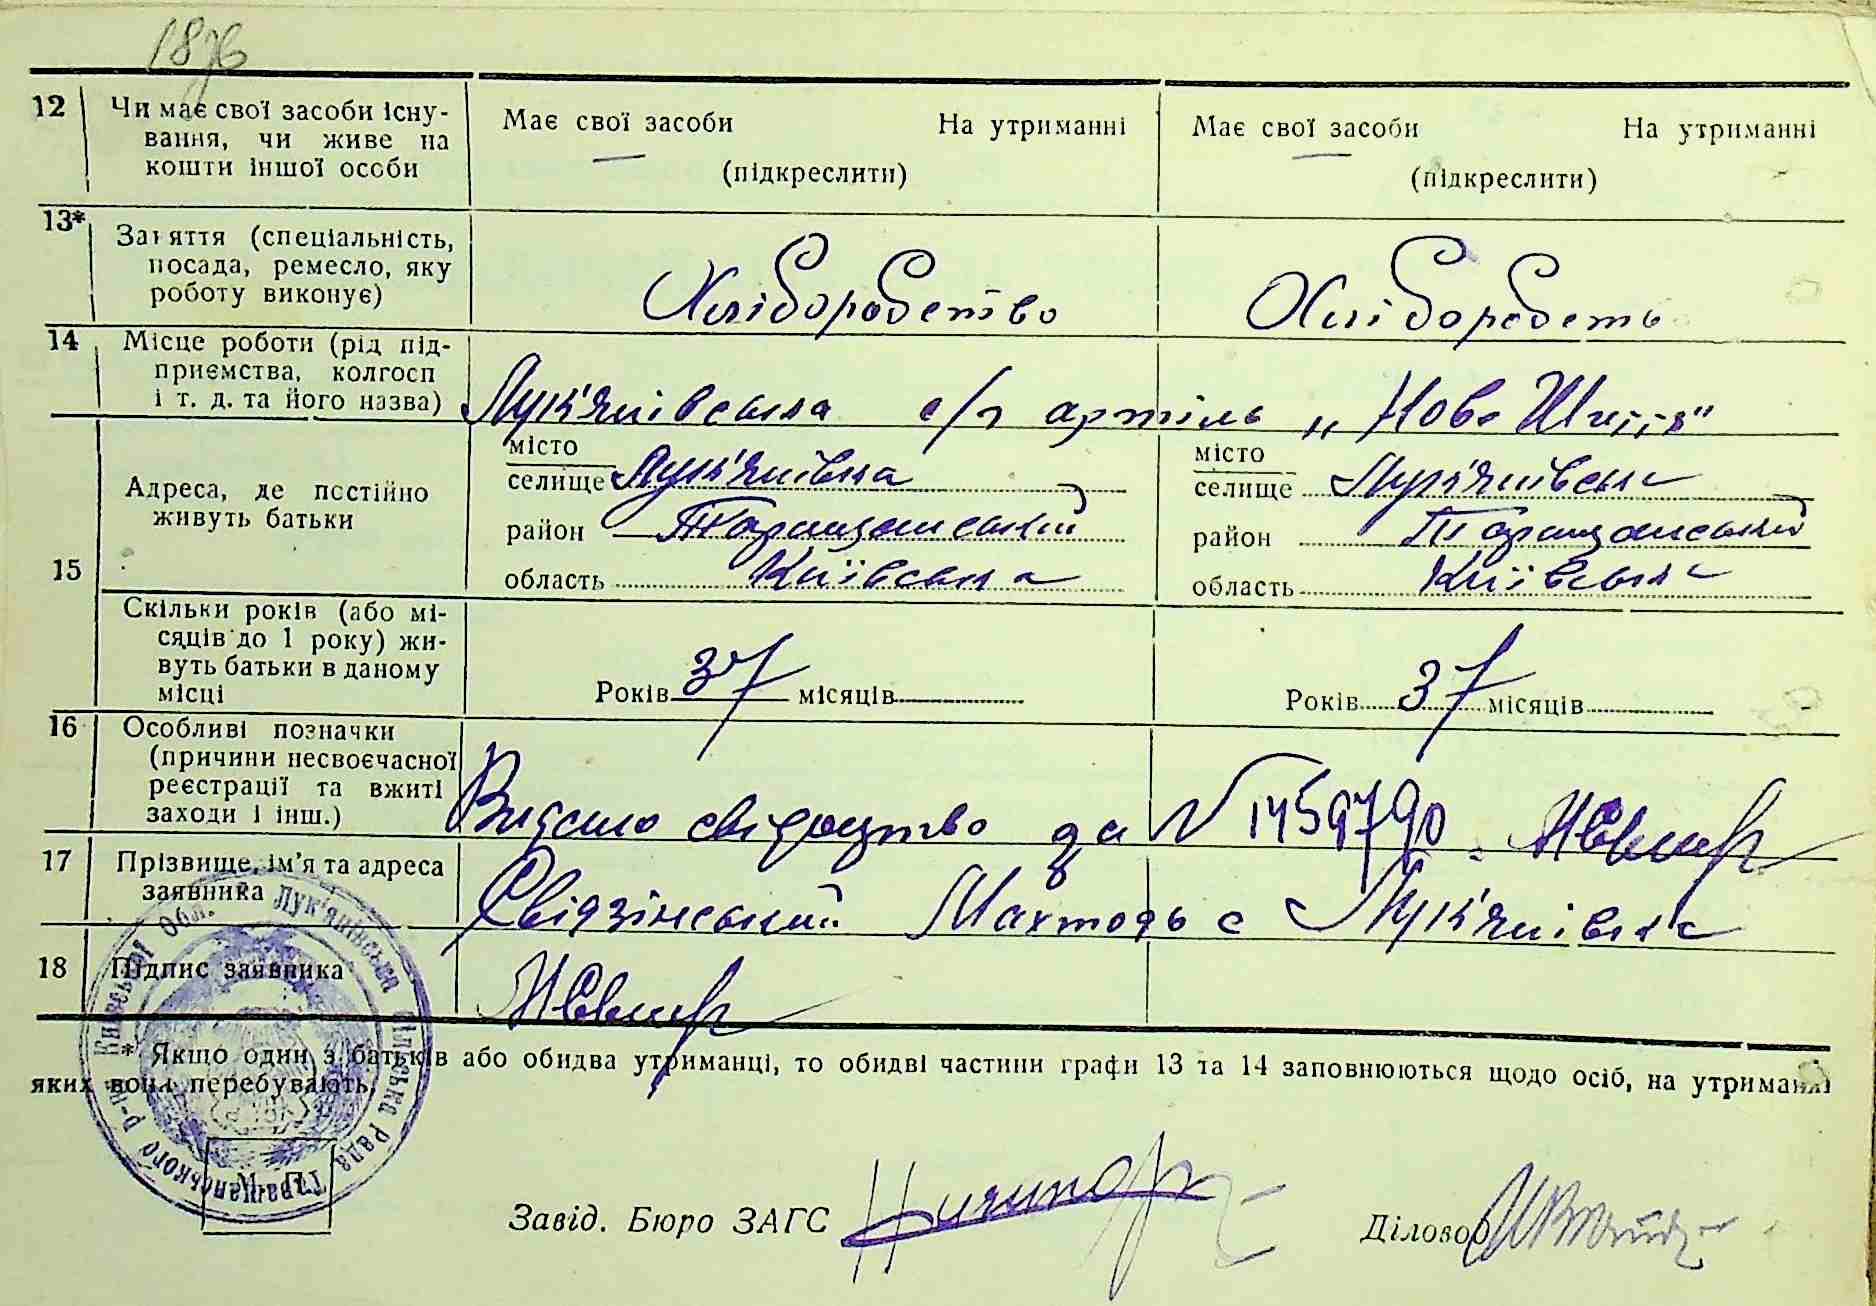 1876
12 Чи має свої засоби існу-
вання, чи живе на
кошти іншої особи
Має свої засоби На утриманні
(підкреслити)
Має свої засоби На утриманні
(підкреслити)
13* Заняття (спеціальність,
посада, ремесло, яку
роботу виконує)
Хліборобство
Хліборобств
14 Місце роботи (рід під-
приємства, колгосп
і т. д. та його назва)
Лук'янівська с/г артіль „Нове Життя"
15
Адреса, де постійно
живуть батьки
місто
селище Лук'янівка
район Таращанський
область Київська
місто
селище Лук'янівська
район Таращанський
область Київська
Скільки років (або мі-
сяців до 1 року) жи-
вуть батьки в даному
місці
Років 37 місяців
Років 37 місяців
16 Особливі позначки
(причини несвоєчасної
реєстрації та вжиті
заходи і інш.)
Видано свідоцтво за № 1459790
17 Прізвище, ім'я та адреса
заявника
Свідзінський с Лук'янівка
18 Підпис заявника
* Якщо один з батьків або обидва утриманці, то обидві частини графи 13 та 14 заповнюються щодо осіб, на утриманні
яких вони перебувають.
Лук'янівська Сільська Рада Таращанського р-ну Київської Обл.
М. П.
Завід. Бюро ЗАГС
Діловод